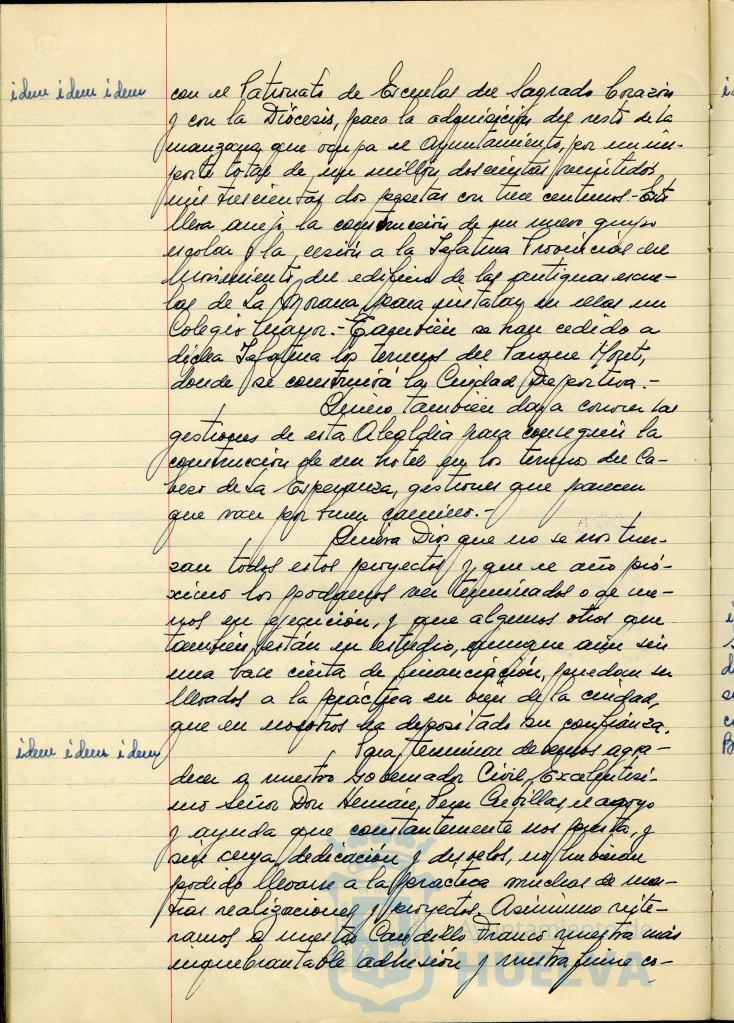 idem idem idem
con el Patronato de Escuelas del Sagrado Corazón
y con la Diócesis, para la adquisición del resto de la
manzana que ocupa el Ayuntamiento, por un im-
porte total de un millón doscientas veintidos
mil trescientas dos pesetas con trece centimos.- Esto
lleva anejo la construcción de un nuevo grupo
escolar y la cesión a la Jefatura Provincial del
Movimiento del edificio de las antiguas escue-
las de La Morana para instalar en ellas un
Colegio Mayor.- También se han cedido a
dicha Jefatura los terrenos del Parque Moret,
donde se construirá la Ciudad Deportiva.-
Quiero también dar a conocer las
gestiones de esta Alcaldía para conseguir la
construcción de un hotel en los terrenos del Ca-
bezo de La Esperanza, gestiones que parecen
que van por buen camino.-
Quiera Dios que no se nos tuer-
zan todos estos proyectos y que el año pró-
ximo los podamos ver terminados o al me-
nos en ejecución, y que algunos otros que
también están en estudio, aunque aún sin
una base cierta de financiación, puedan ser
llevados a la práctica en bien de la ciudad,
que en nosotros ha depositado su confianza.
idem idem idem
Para terminar debemos agra-
decer a nuestro Gobernador Civil, Excelentísi-
mo Señor Don Hernán Pérez Cubillas, el apoyo
y ayuda que constantemente nos presta, y
sin cuya dedicación y desvelos, no hubieran
podido llevarse a la práctica muchas de nues-
tras realizaciones y proyectos. Asimismo reite-
ramos a nuestro Caudillo Franco nuestra más
inquebrantable adhesión y nuestra firme co-
Ayuntamiento de
HUELVA